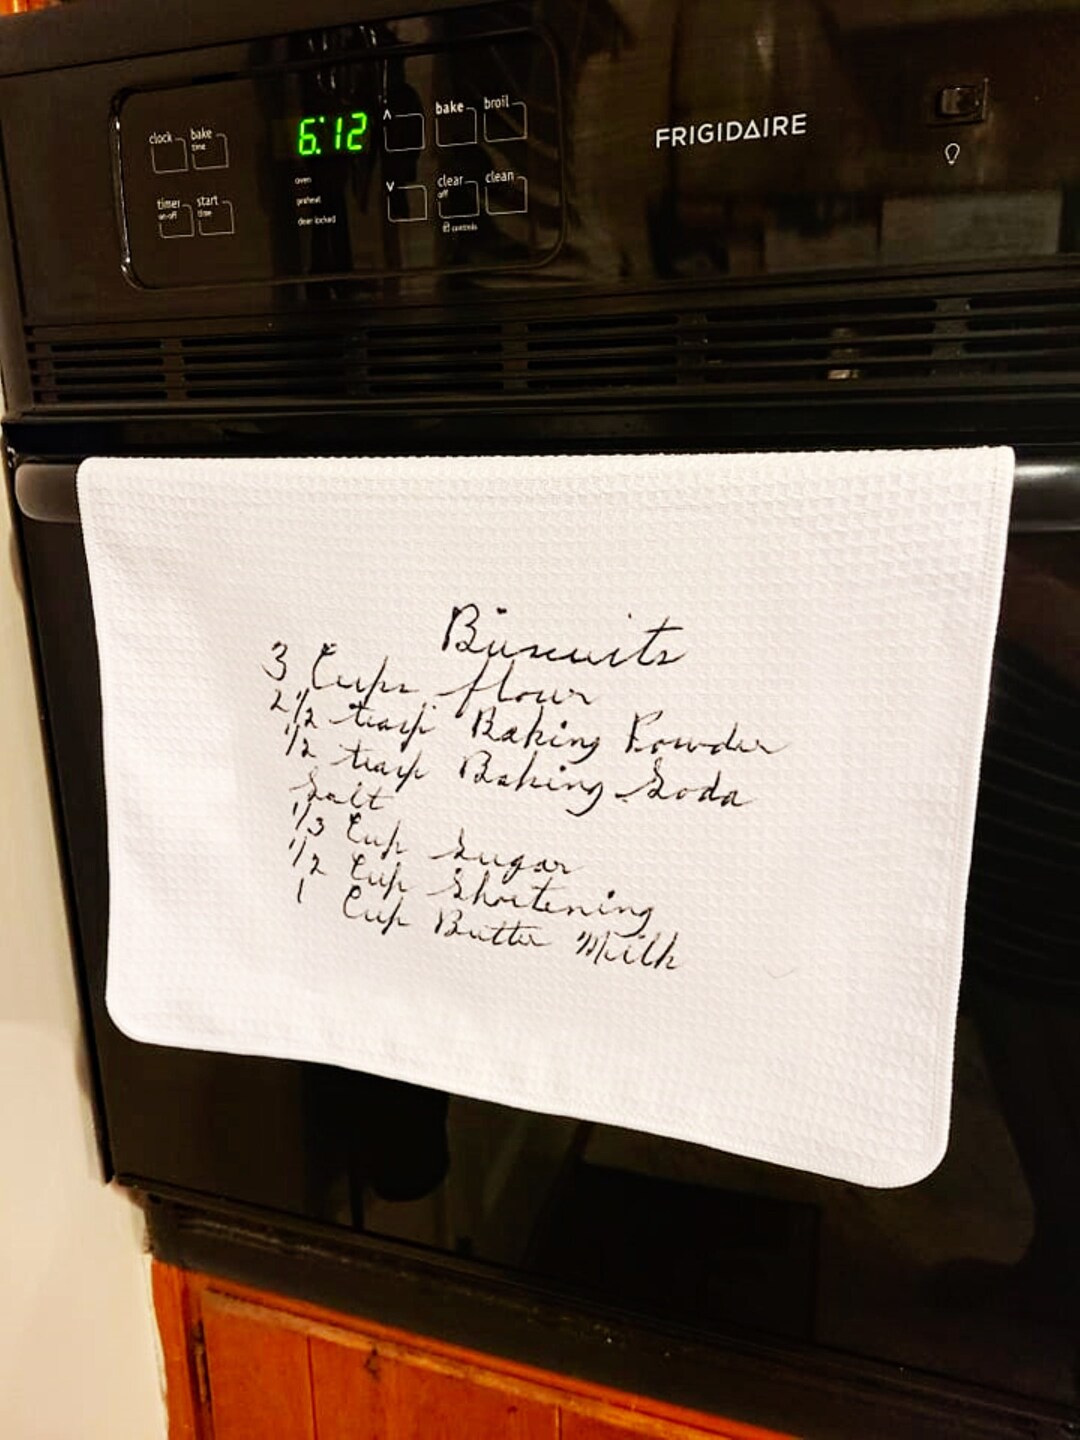 clock bake time 6:12 ^ bake broil
FRIGIDAIRE
oven
preheat
door locked
timer on-off start time v clear off clean
controls
Biscuits
3 Cups flour
2 1/2 teasp Baking Powder
1/2 teasp Baking Soda
Salt
1/3 Cup Sugar
1/2 Cup Shortening
1 Cup Butter Milk